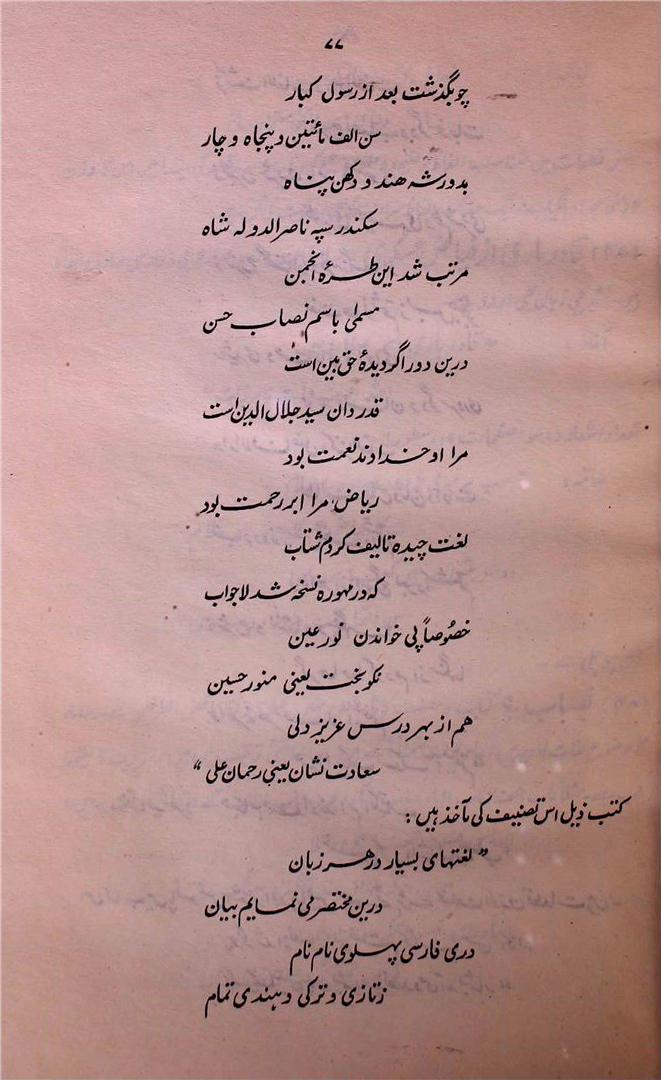 ۷۷
چو بگذشت بعد از رسول کبار
سن الف مأتین و پنجاه و چار
بدور شہ ھند و دکھن پناہ
سکندر سپہ ناصر الدولہ شاہ
مرتب شد این طرۂ انجمن
مسمیٰ باسم نصاب حسن
درین دور اگر دیدۂ حق بین است
قدردان سید جلال الدین است
مرا او خداوند نعمت بود
ریاض مرا ابر رحمت بود
لغت چیدہ تالیف کردم شتاب
کہ در مہورہ نسخہ شد لاجواب
خصُوصاً پی خواندن نور عین
نکو بخت یعنی منور حسین
ھم از بہر درس عزیز دلی
سعادت نشان یعنی رحمان علی "
کتب ذیل اس تصنیف کی مآخذ ہیں :
" لغتہای بسیار در ھر زبان
درین مختصر می نمایم بیان
دری فارسی پہلوی نام نام
ز تازی و ترکی و ہندی تمام